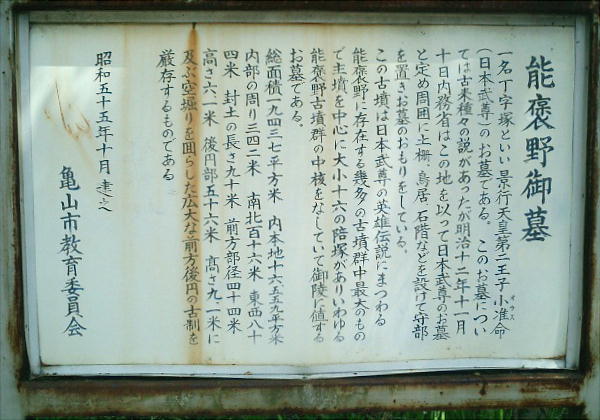 能褒野御墓
一名丁字塚といい 景行天皇第二王子小准命
オウス
(日本武尊)のお墓である。 このお墓につい
ては古来種々の説があったが明治十二年十一月
十日内務省はこの地を以って日本武尊のお墓
と定め周囲に土柵、鳥居、石階などを設けて守部
を置きお墓のおもりをしている。
この古墳は日本武尊の英雄伝説にまつわる
能褒野に存在する幾多の古墳群中最大のもの
で主墳を中心に大小十六の陪塚がありいわゆる
能褒野古墳群の中核をなしていて御陵に値する
お墓である。
総面積一九四三七平方米 内本地十六五五九平方米
内部の周り三四二米 南北百十六米 東西八十
四米 封土の長さ九十米 前方部径四十四米
高さ六一米 後円部五十六米 高さ九一米に
及ぶ空堀りを囲らした広大な前方後円の古制を
厳存するものである
昭和五十五年十月 建之
亀山市教育委員会